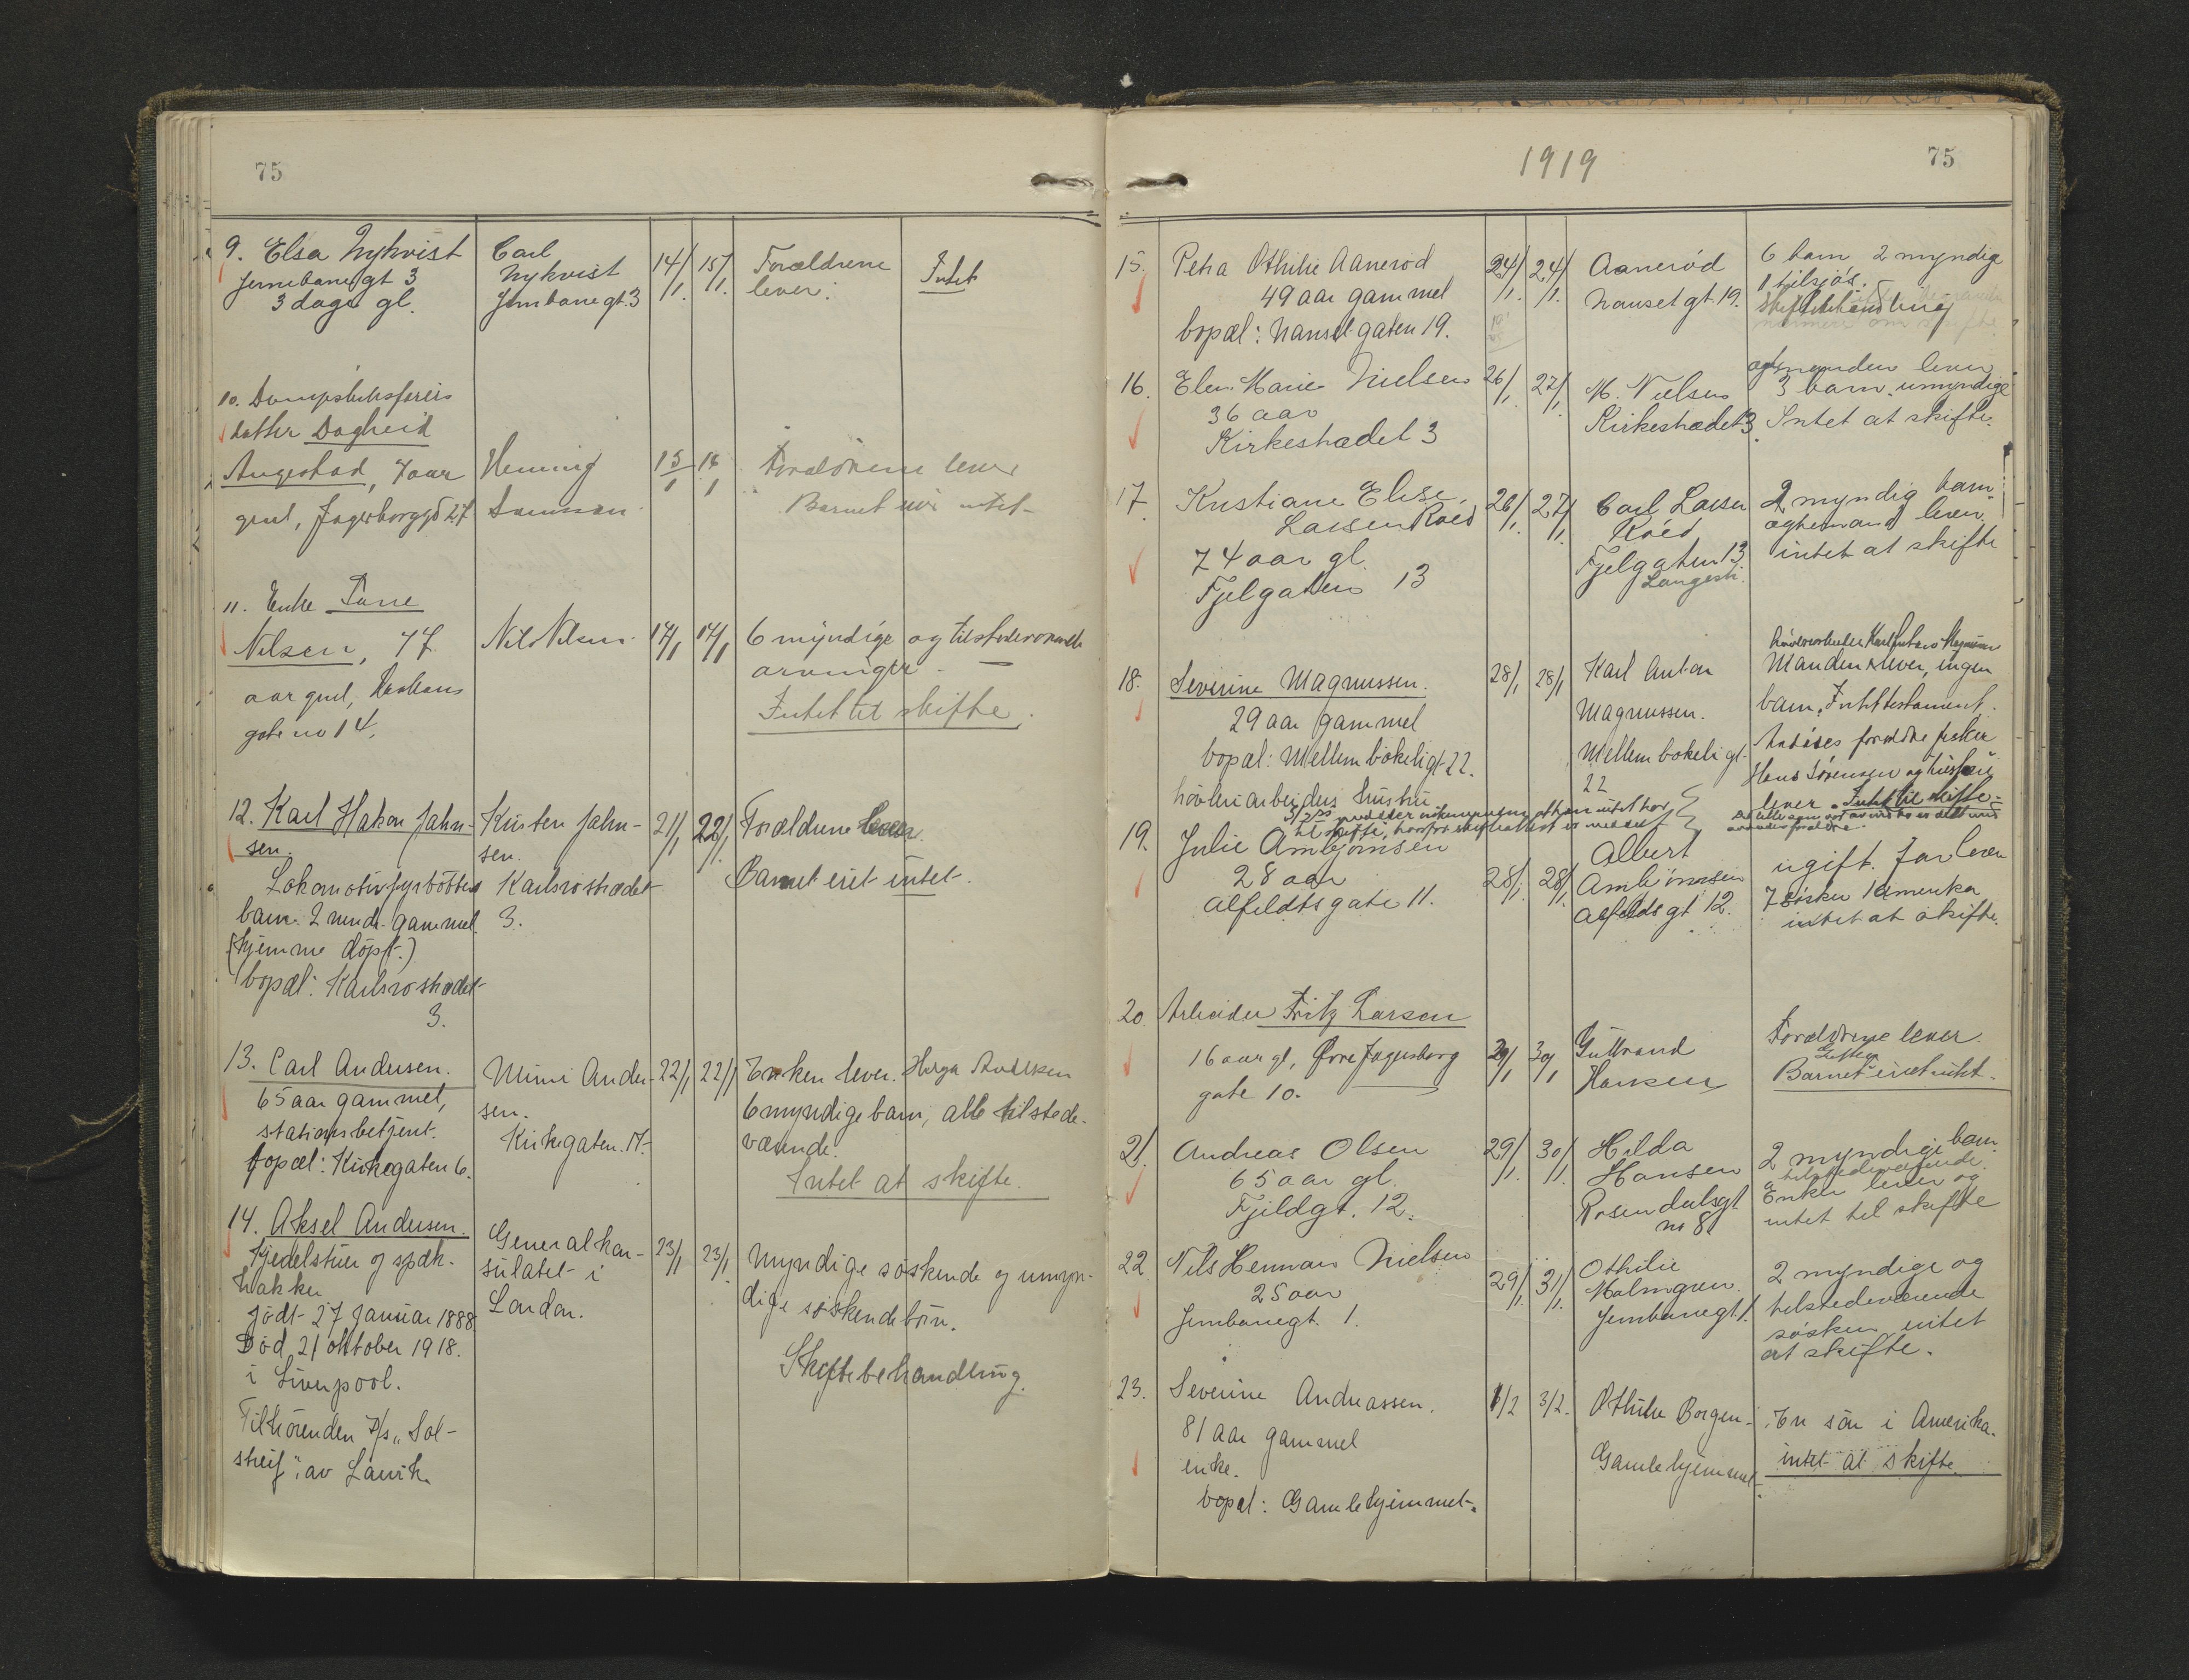 75
9. Elsa Nykvist
Jernebanegt 3
3 dage gl.
Carl
Nykvist
Jernbanegt. 3
14/1.
15/1.
Forældrene
lever.
Intet
10.
datter Dagheid
Augestad, 7 aar
gml, Jegersborggd 27
Henning
15/1
16/1
Forældrene lever
Barnet eier intet
11. Enke
Nilsen, 77
aar gml,
gate no 14.
Nils Nilsen
14/1
14/1
6 myndige og tilstedeværende
arvinger.
Intet til skifte.
12. Karl Hakon Jahn-
sen.
Lokomotivfyrbøters
barn 2 mndr. gammel.
(hjemme döpt.)
bopæl: Karlsrostrædet
3.
Kristen Jahn-
sen.
Karlsrostrædet
3.
21/1
22/1.
Forældrene lever.
Barnet eiet intet.
13. Carl Andersen.
65 aar gammel,
stationsbetjent.
bopæl: Kirkegaten 6.
Mimi Ander-
sen.
Kirkegaten 17.
22/1
22/1
Enken lever. Helga Andersen
6 myndige barn, alle tilstede-
værende.
Intet at skifte.
14. Aksel Andersen.
Kjedelstuer og spæk-
hakker
födt 27 Januar 1888
Död 21 oktober 1918.
i Liverpool.
Tilhörenden D/s. "Sol-
streif" av Larvik.
Generalkon-
sulatet i
London.
23/1
23/1.
Myndige söskende og umyn-
dige söskendebörn.
Skiftebehandling.
1919
75
15.
Petra Othilie Aaneröd
49 aar gammel
bopæl: Nansetgaten 19.
24/1.
24/1.
Aaneröd
Nansetgt. 19.
6 barn 2 myndige
1 tilsjös.
Skiftebehandling
16.
Elen Marie Nielsen
36 aar
Kirkestrædet 3
26/1.
27/1.
M. Nielsen
Kirkestrædet 3
egtemanden lever
3 barn umyndige
Intet at skifte.
17.
Kristiane Elise
Larsen Röed
74 aar gl.
Fjelgaten 13
26/1.
27/1.
Carl Larsen
Röed
Fjelgaten 13
2 myndig barn
egtemand lever
intet at skifte
18.
Severine Magnussen.
29 aar gammel
bopæl: Mellem bökeligt 22.
hövleriarbeiders hustru
28/1
28/1
Karl Anton
Magnussen.
Mellem bokeligt
22
Manden lever, ingen
barn. Intet testament.
Avdödes forældre fisker
Hans Sörensen og hustru
lever. Intet til skifte.
19.
Julie Ambjörnsen
28 aar
Alfeldtsgate 11.
28/1.
28/1.
Albert
Ambjörnsen
Alfeldsgt 12.
ugift. far lever
7 søsken 1 Amerika
intet at skifte.
20
Arbeider Fritz Larsen
16 aar gl, Övre Jegersborg
gate 10.
29/1
30/1
Guttorm
Hansen
Forældrene lever.
Barnet eiet intet.
21.
Andreas Olsen
65 aar gl.
Fjeldgt. 12.
29/1.
30/1.
Hilda
Hansen
Rosendalsgt
no 8.
2 myndige barn
tilstedeværende.
Enken lever og
intet til skifte
22
Nils Herman Nielsen
25 aar
Jernbanegt. 1.
29/1.
31/1.
Othilie
Malmgren
Jernbanegt 1.
2 myndige og
tilstedeværende
søsken intet
at skifte.
23.
Severine Andreassen.
81 aar gammel
enke.
bopæl: Gamlehjemmet.
1/2
3/2.
Othilie Borgen
Gamlehjemmet
En sön i Amerika.
intet at skifte.